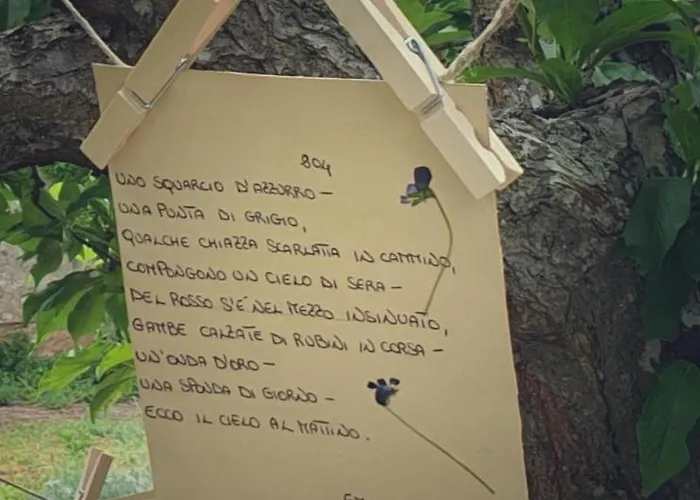 804
UNO SQUARCIO D'AZZURRO –
UNA PUNTA DI GRIGIO,
QUALCHE CHIAZZA SCARLATTA IN CAMMINO,
COMPONGONO UN CIELO DI SERA –
DEL ROSSO S'È NEL MEZZO INSINUATO,
GAMBE CALZATE DI RUBINI IN CORSA –
UN'ONDA D'ORO –
UNA SPONDA DI GIORNO –
ECCO IL CIELO AL MATTINO.